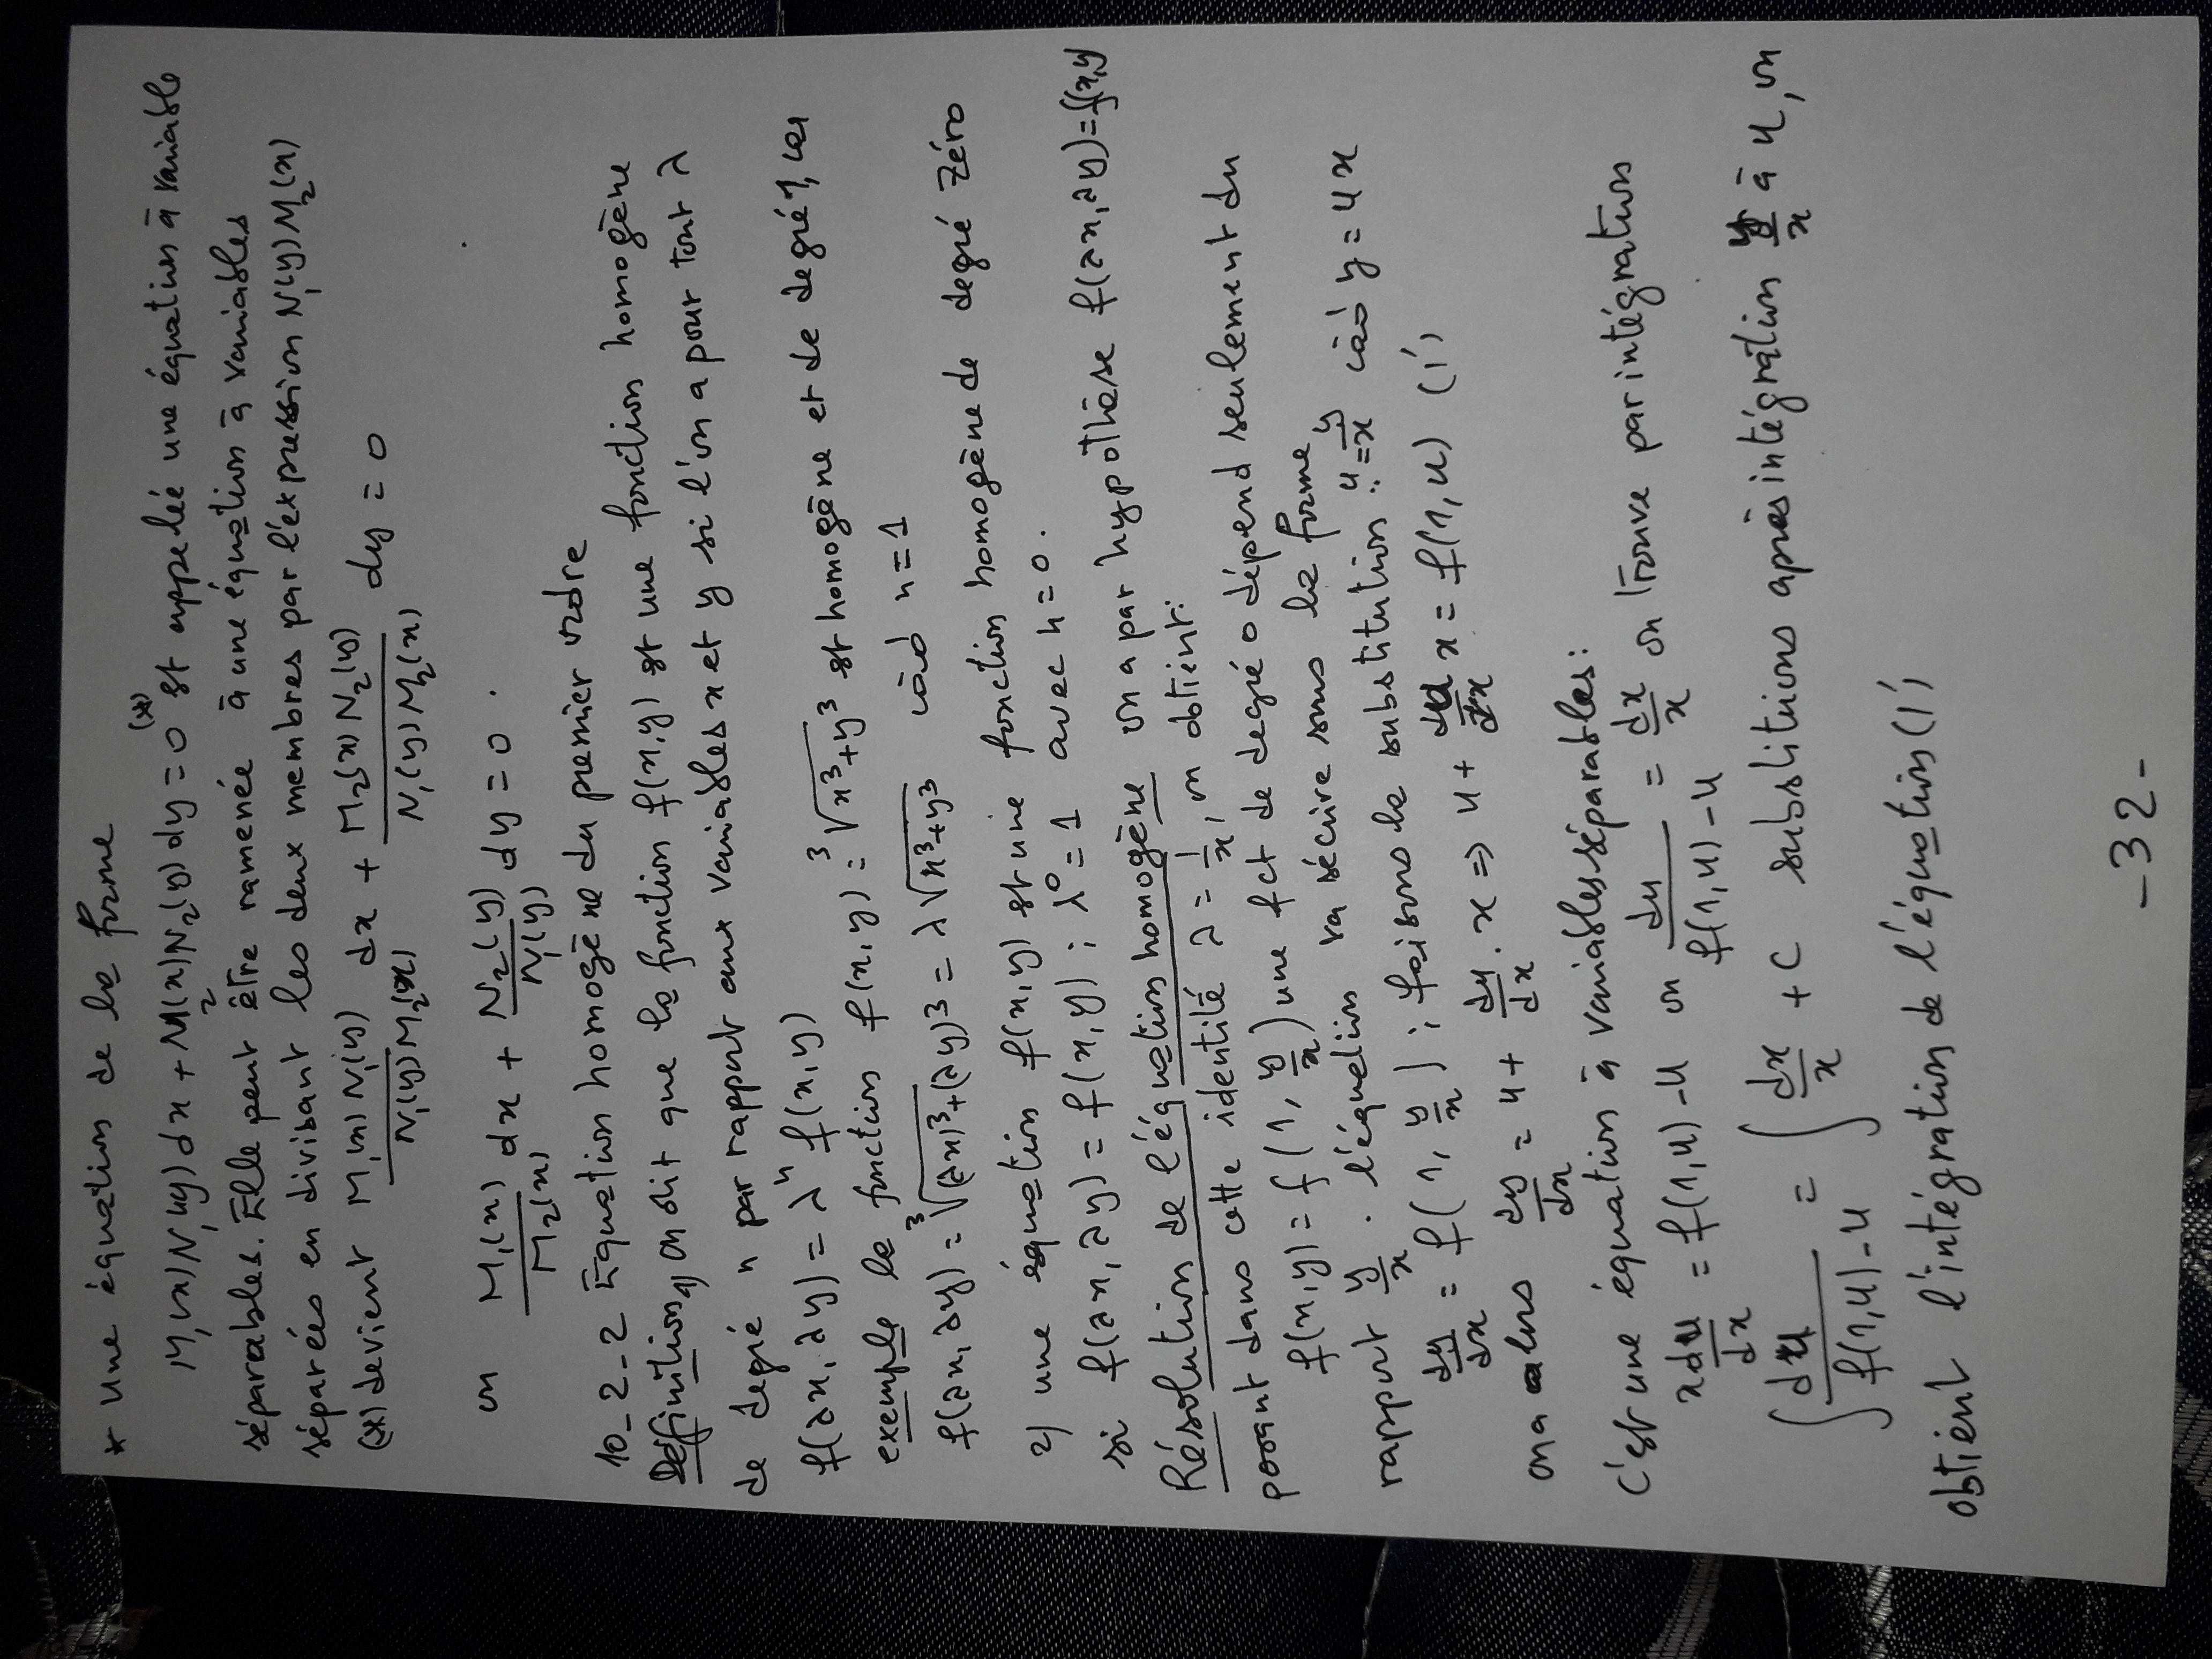 * Une équation de la forme
M₁(x)N₁(y)dx + M₂(x)N₂(y)dy = 0 (*) est appelée une équation à variable
séparables. Elle peut être ramenée à une équation à variables
séparées en divisant les deux membres par l'expression N₁(y)M₂(x)
(*) devient M₁(x)N₁(y)/N₁(y)M₂(x) dx + M₂(x)N₂(y)/N₁(y)M₂(x) dy = 0
ou M₁(x)/M₂(x) dx + N₂(y)/N₁(y) dy = 0.
10_2_2 Equation homogène du premier ordre
Définition 1) on dit que la fonction f(x,y) est une fonction homogène
de degré n par rapport aux variables x et y si l'on a pour tout λ
f(λx,λy) = λⁿ f(x,y)
exemple la fonction f(x,y) = ³√(x³+y³) est homogène et de degré 1, car
f(λx,λy) = ³√((λx)³+(λy)³) = λ ³√(x³+y³) càd n=1
2) une équation f(x,y) est une fonction homogène de degré zéro
si f(λx,λy) = f(x,y) ; λ⁰=1 avec n=0.
Résolution de l'équation homogène on a par hypothèse f(λx,λy)=f(x,y
posant dans cette identité λ = 1/x, on obtient:
f(x,y) = f(1, y/x) une fct de degré 0 dépend seulement du
rapport y/x. l'équation va s'écrire sous la forme
dy/dx = f(1, y/x) ; faisons la substitution: u=y/x càd y=ux
on a alors dy/dx = u + du/dx . x => u + du/dx x = f(1,u) (1')
C'est une équation à variables séparables:
x du/dx = f(1,u)-u ou du/f(1,u)-u = dx/x on trouve par intégrations
∫ du/f(1,u)-u = ∫ dx/x + C substituons après intégration y/x à u, on
obtient l'intégration de l'équation (1')
-32-